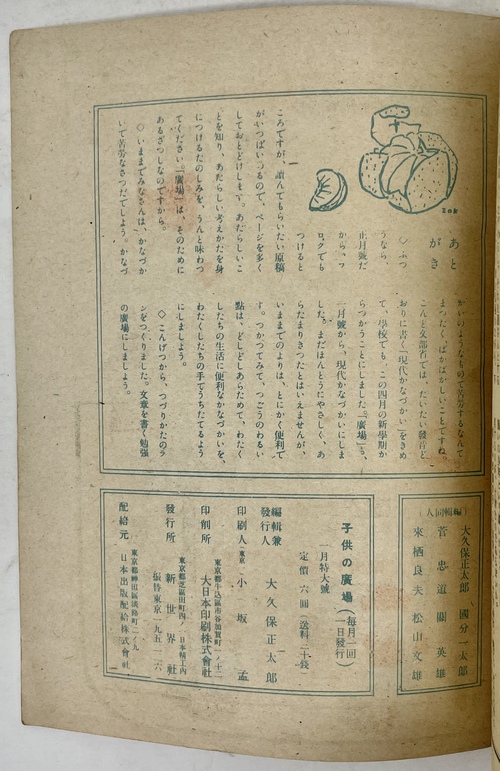 あとがき
◇ ふつ
うなら、
正月號だ
から、フ
ロクでも
つけると
ころですが、讀んでもらいたい原稿
がいつぱいつるので、ページを多く
しておとどけします。あたらしいこ
とを知り、あたらしい考えかたを身
につけるたのしみを、うんと味わつ
てください。「廣場」は、そのために
あるざつしなのですから。
◇ いままでみなさんは、かなづか
いで苦労なさつたでしよう。かなづ
かいのようなもので苦労するなんて
まつたく、ばかばかしいことですね。
こんど文部省では、だいたい發音ど
おりに書く「現代かなづかい」をきめ
て、學校でも、この四月の新學期か
らつかうことにしました。「廣場」も、
一月號から、現代かなづかいにしま
した。まだほんとうにやさしく、あ
らたまりきつたとはいえませんが、
いままでのよりは、とにかく便利で
す。つかつてみて、つごうのわるい
點は、どしどしあらためて、わたく
したちの生活に便利なかなづかいを、
わたくしたちの手でうちたてるよう
にしましよう。
◇ こんげつから、つづりかたのラ
ンをつくりました。文章を書く勉強
の廣場にしましよう。
(編輯同人)
大久保正太郎 國分一太郎
菅忠道 關英雄
來栖良夫 松山文雄
子供の廣場 (毎月一回一日發行)
一月特大號
定價 六圓 (送料三十錢)
編輯兼發行人 大久保正太郎
印刷人 東京 小坂孟
東京都牛込區市谷加賀町一ノ十二
印刷所 大日本印刷株式會社
東京都芝區田村町四ノ一日本橋工内
發行所 新世界社
振替東京一九五一二六
東京都神田區淡路町二ノ九
配給元 日本出版配給株式會社